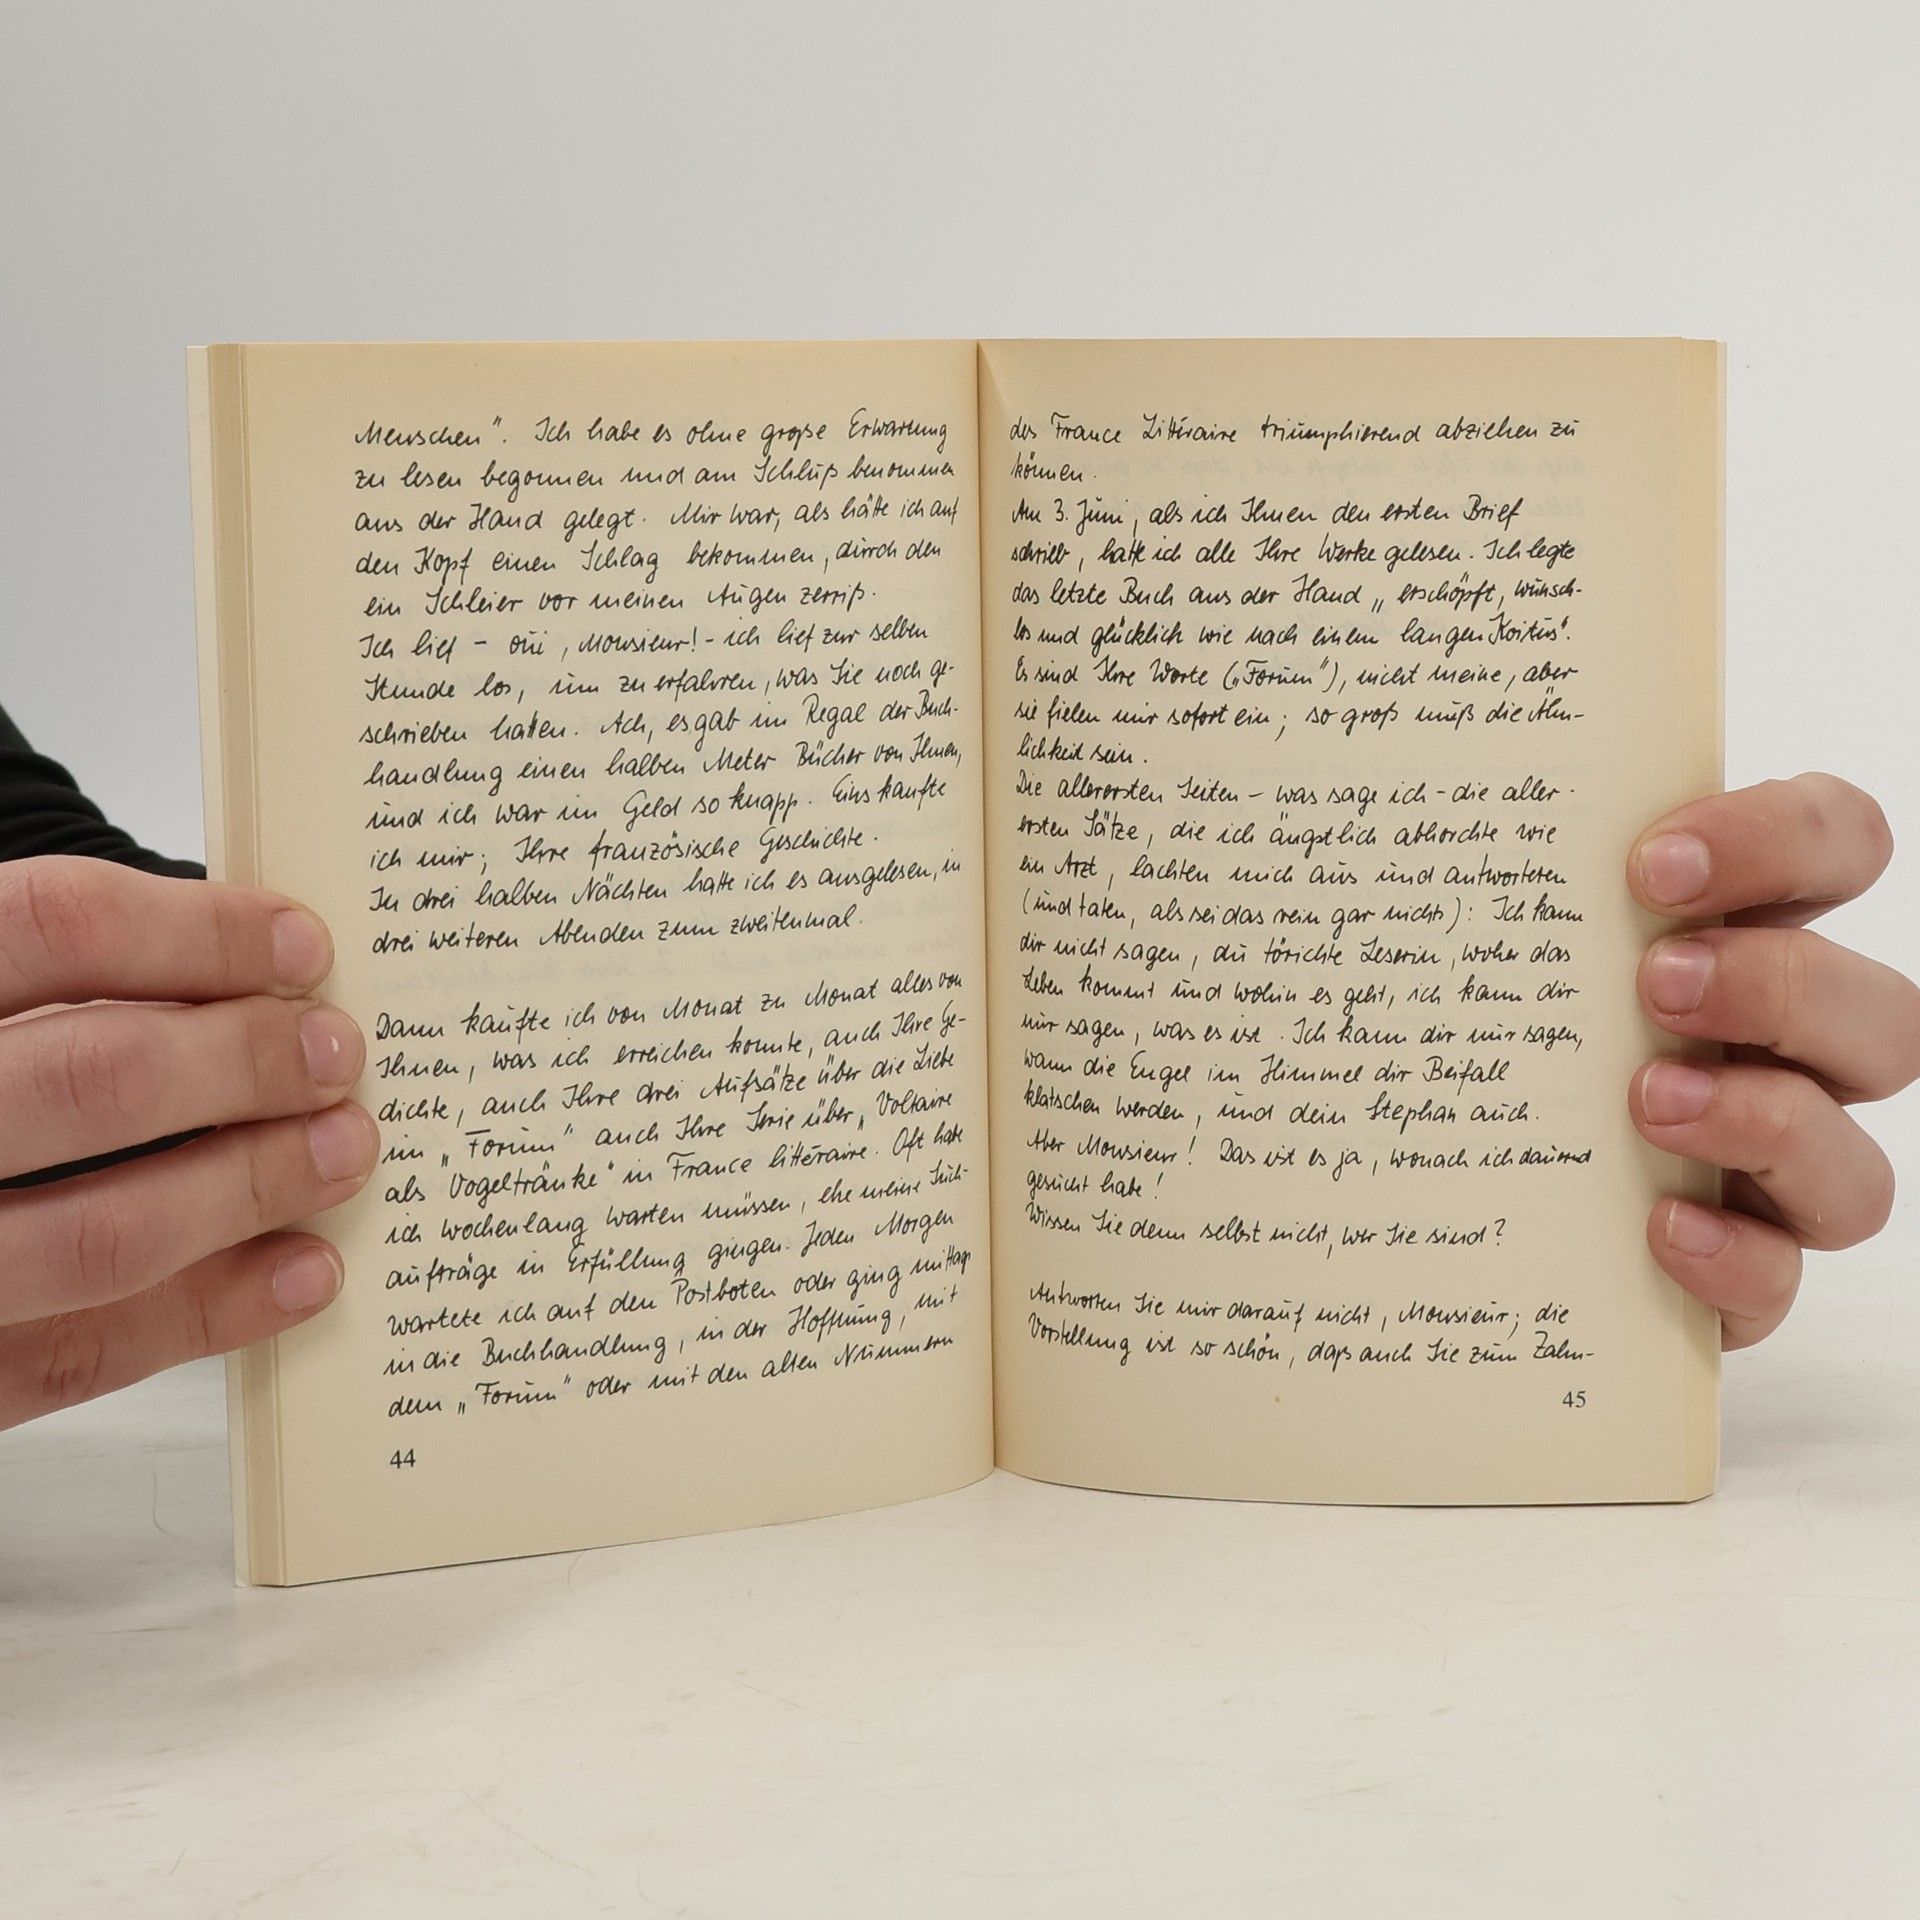 Menschen". Ich habe es ohne große Erwartung
zu lesen begonnen und am Schluß benommen
aus der Hand gelegt. Mir war, als hätte ich auf
den Kopf einen Schlag bekommen, durch den
ein Schleier vor meinen Augen zerriß.
Ich lief - oui, Monsieur! - ich lief zur selben
Stunde los, um zu erfahren, was Sie noch ge-
schrieben hatten. Ach, es gab im Regal der Buch-
handlung einen halben Meter Bücher von Ihnen,
und ich war im Geld so knapp. Eins kaufte
ich mir; Ihre französische Geschichte.
In drei halben Nächten hatte ich es ausgelesen, in
drei weiteren Abenden zum zweitenmal.
Dann kaufte ich von Monat zu Monat alles von
Ihnen, was ich erreichen konnte, auch Ihre Ge-
dichte, auch Ihre drei Aufsätze über die Liebe
im „Forum" auch Ihre Serie über „Voltaire
als Vogeltränke" in France littéraire. Oft habe
ich wochenlang warten müssen, ehe meine Such-
aufträge in Erfüllung gingen. Jeden Morgen
wartete ich auf den Postboten oder ging mittags
in die Buchhandlung, in der Hoffnung, mit
dem „Forum" oder mit den alten Nummern
44
des France Littéraire triumphierend abziehen zu
können.
Am 3. Juni, als ich Ihnen den ersten Brief
schrieb, hatte ich alle Ihre Werke gelesen. Ich legte
das letzte Buch aus der Hand „erschöpft, wunsch-
los und glücklich wie nach einem langen Koitus".
Es sind Ihre Worte („Forum"), nicht meine, aber
sie fielen mir sofort ein; so groß muß die Ähn-
lichkeit sein.
Die allerersten Seiten - was sage ich - die aller-
ersten Sätze, die ich ängstlich abhorchte wie
ein Arzt, lachten mich aus und antworteten
(und taten, als sei das rein gar nichts): Ich kann
dir nicht sagen, du törichte Leserin, woher das
Leben kommt und wohin es geht, ich kann dir
nur sagen, was es ist. Ich kann dir nur sagen,
wann die Engel im Himmel dir Beifall
klatschen werden, und dein Stephan auch.
Aber Monsieur! Das ist es ja, wonach ich dauernd
gesucht habe!
Wissen Sie denn selbst nicht, wer Sie sind?
Antworten Sie mir darauf nicht, Monsieur; die
Vorstellung ist so schön, daß auch Sie zum Zahn-
45